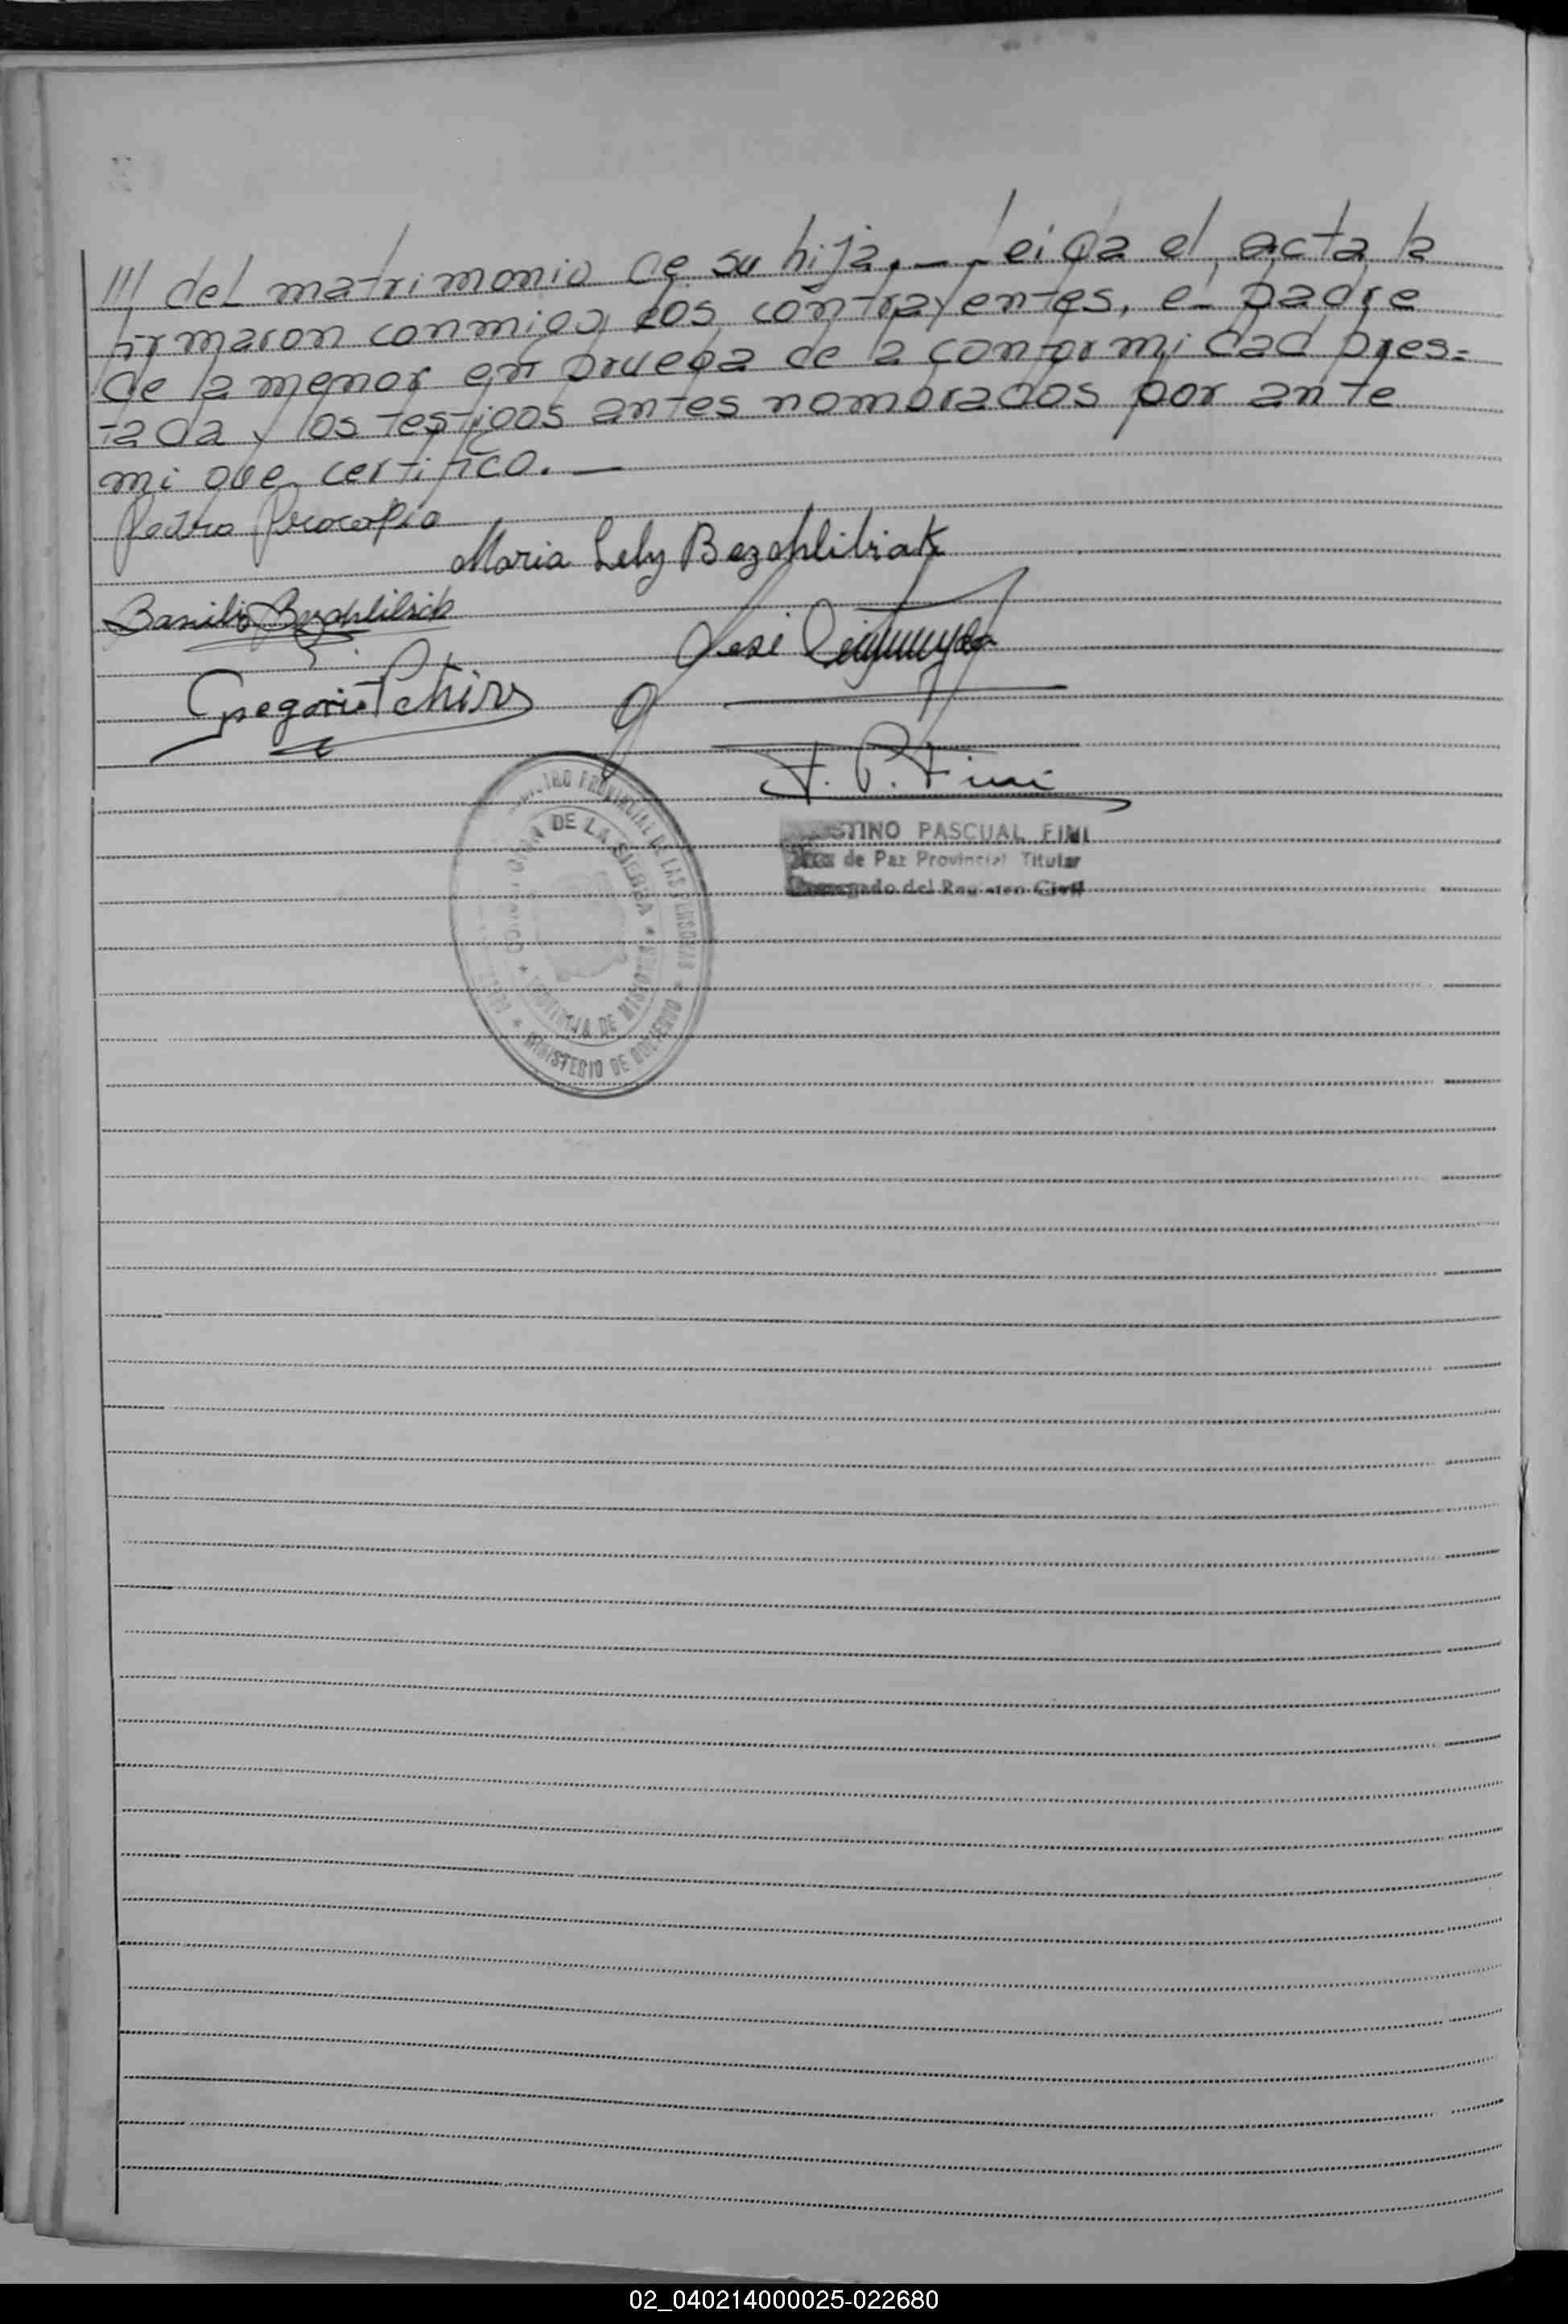 /// del matrimonio de su hija.— Leida el acta la
firmaron conmigo los contrayentes, el padre
de la menor en prueba de la conformidad pres=
tada y los testigos antes nombrados por ante
mi que certifico.—
Pedro Procopio
Maria Lely Bezchlibiak
Basilio Bezchlibiak
José
Gregorio
F. P. Fini
PASCUAL FINI
de Paz Provincial Titular
Encargado del Registro Civil
REGISTRO PROVINCIAL DE LAS PERSONAS * MINISTERIO DE GOBIERNO *
DE LA SIERRA * PROVINCIA DE MISIONES *
02_040214000025-022680